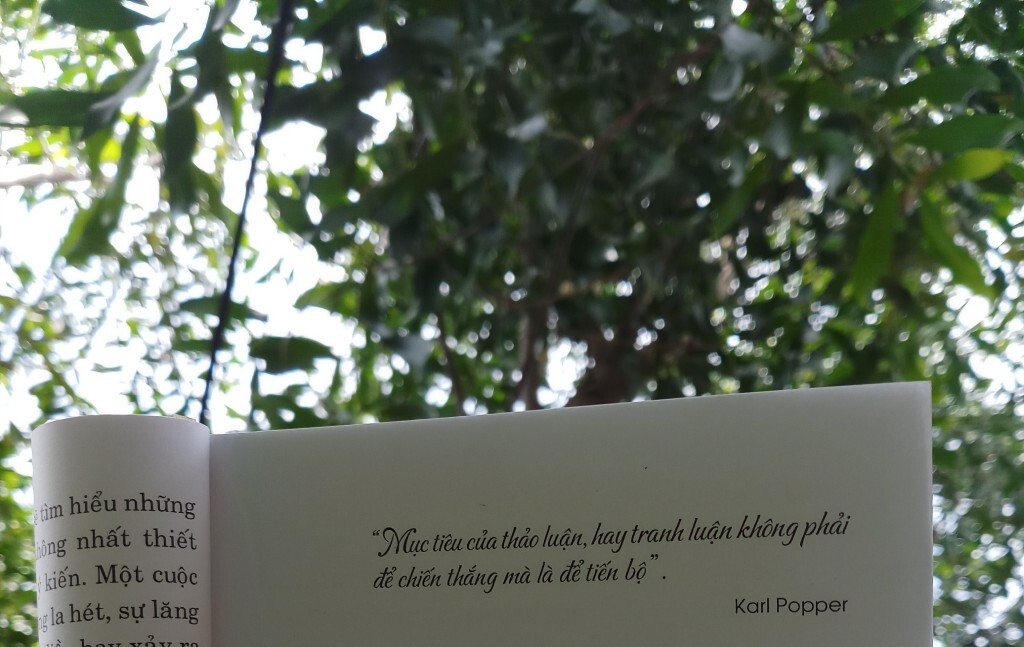 tìm hiểu những
nhất thiết
kiến. Một cuộc
la hét, sự lăng
hay xảy ra
“Mục tiêu của thảo luận, hay tranh luận không phải
để chiến thắng mà là để tiến bộ”.
Karl Popper